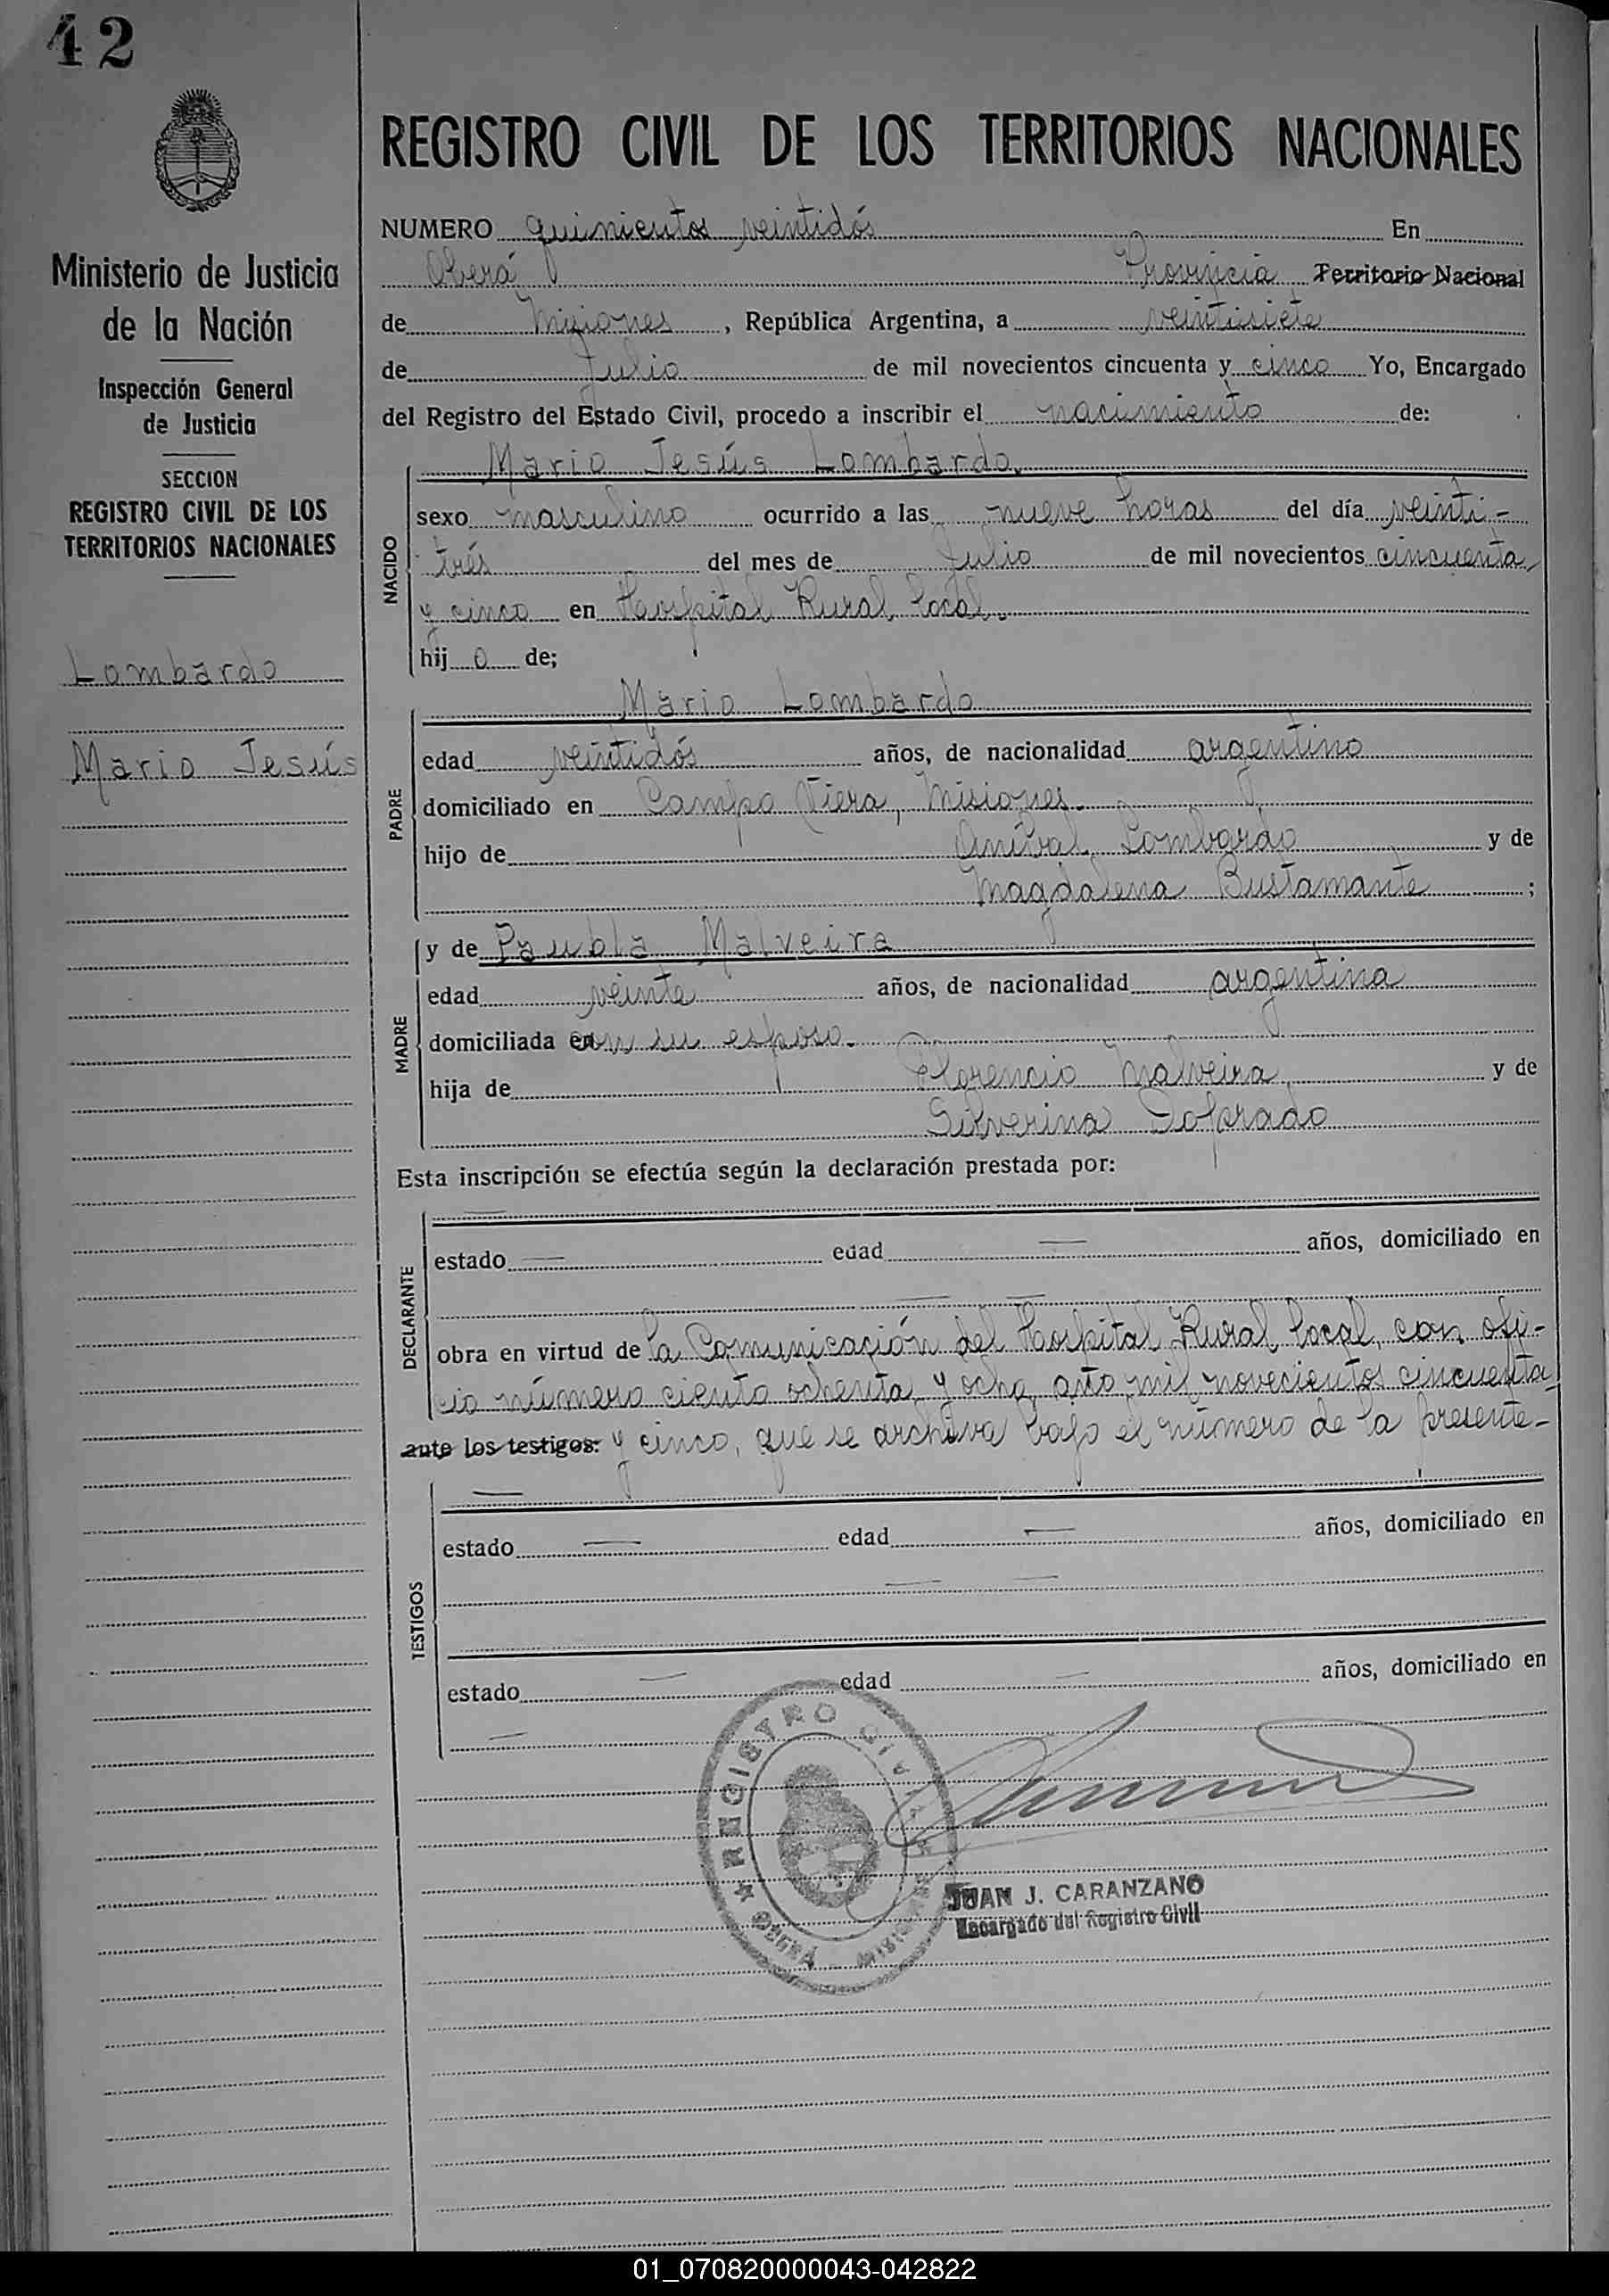 42
Ministerio de Justicia
de la Nación
Inspección General
de Justicia
SECCION
REGISTRO CIVIL DE LOS
TERRITORIOS NACIONALES
Lombardo
Mario Jesús
REGISTRO CIVIL DE LOS TERRITORIOS NACIONALES
NUMERO quinientos veintidós En
Oberá Provincia Territorio Nacional
de Misiones, República Argentina, a veintisiete
de Julio de mil novecientos cincuenta y cinco Yo, Encargado
del Registro del Estado Civil, procedo a inscribir el nacimiento de:
Mario Jesús Lombardo.
NACIDO
sexo masculino ocurrido a las nueve horas del día veinti-
trés del mes de Julio de mil novecientos cincuenta
y cinco en Hospital Rural Local.
hijo de;
Mario Lombardo
PADRE
edad veintidós años, de nacionalidad argentino
domiciliado en Campo Viera, Misiones.
hijo de Aníbal Lombardo y de
Magdalena Bustamante ;
y de Paubla Malveira
MADRE
edad veinte años, de nacionalidad argentina
domiciliada con su esposo.
hija de Florencio Malveira, y de
Silverina Doprado
Esta inscripción se efectúa según la declaración prestada por:
DECLARANTE
estado — edad — años, domiciliado en
obra en virtud de la Comunicación del Hospital Rural Local, con ofi-
cio número ciento ochenta y ocho año mil novecientos cincuenta
ante los testigos: y cinco, que se archiva bajo el número de la presente-
TESTIGOS
estado — edad — años, domiciliado en
estado — edad — años, domiciliado en
REGISTRO CIVIL
OBERÁ - MISIONES
JUAN J. CARANZANO
Encargado del Registro Civil
01_070820000043-042822